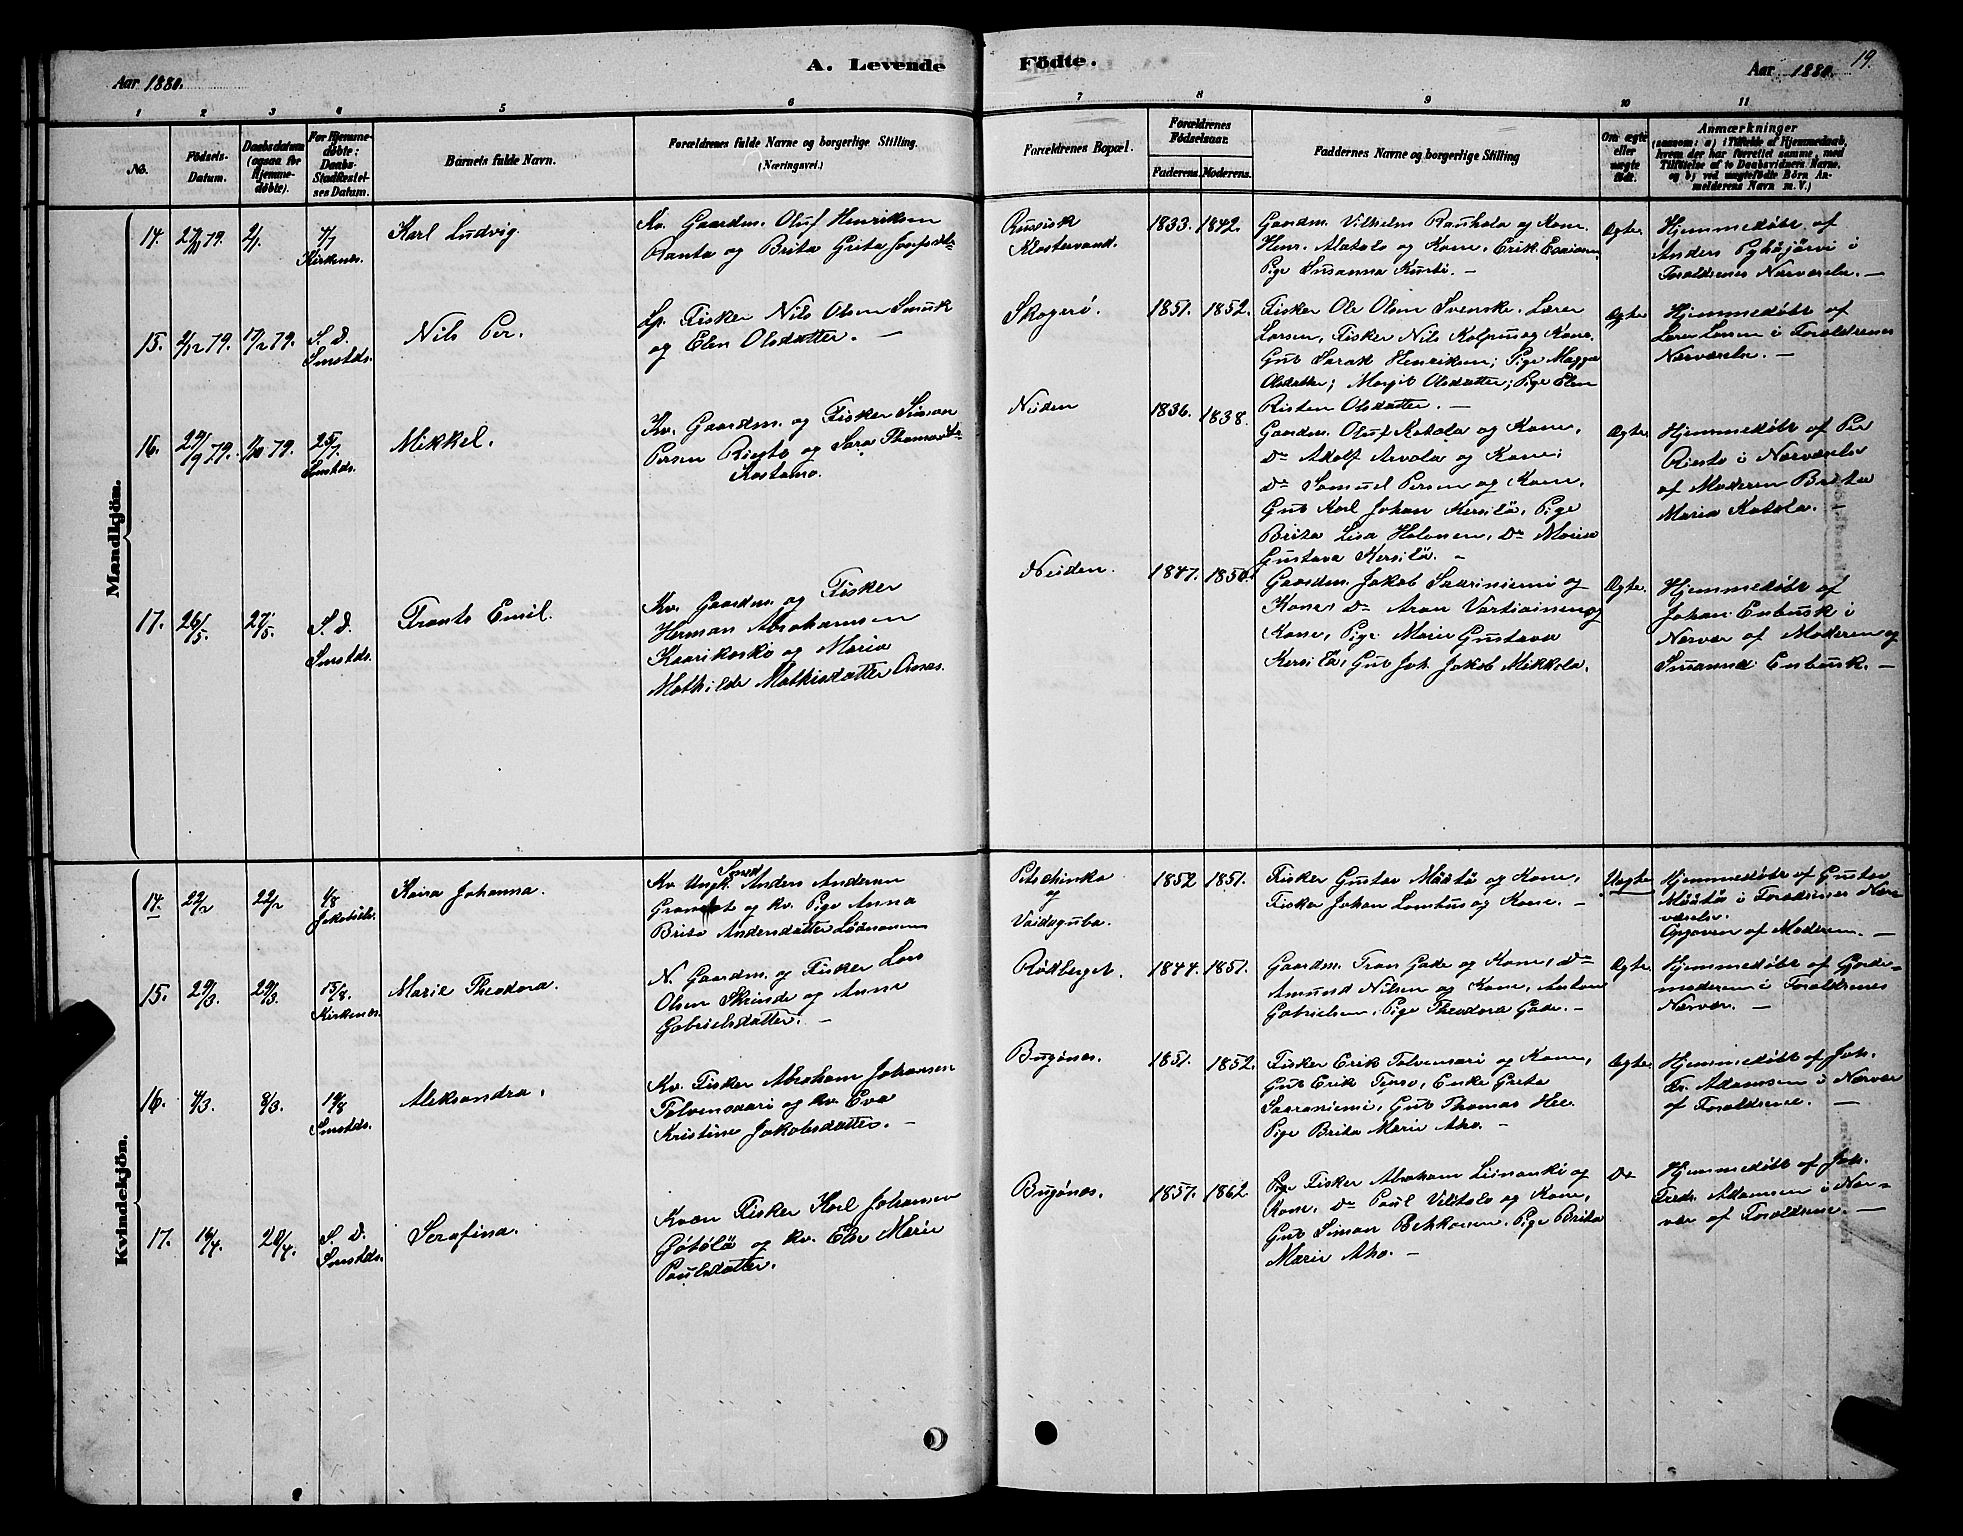 A. Levende Födte.
19.
Aar 1880.
Aar 1880.
1 2 3 4 5 6 7 8 9 10 11
No.
Fødsels-
Datum.
Daabsdatum
(ogsaa for
Hjemme-
døbte).
For Hjemme-
døbte;
Daabs-
Stadfæstel-
ses Datum.
Barnets fulde Navn.
Forældrenes fulde Navne og borgerlige Stilling.
(Næringsvei.)
Forældrenes Bopæl.
Forældrenes
Fødselsaar.
Faderens. Moderens.
Faddernes Navne og borgerlige Stilling
Om ægte
eller
uægte
født.
Anmærkninger
(saasom: a) i Tilfælde af Hjemmedaab,
hvem der har forrettet samme, med
Tilføielse af to Daabsvidners Navne,
og b) ved uægtefødte Børn An-
melderens Navn m. V.)
Mandkjön.
14.
79.
2/1.
7/7
Kirkenes.
Karl Ludvig.
Kv. Gaardm. Oluf Henriksen
Ranta og Brita Greta
Russisk
Klostervand.
1833. 1842.
Gaardm. Vilhelm Rauhala og Kone.
Henr. Alatalo og Kone, Erik
Pige Susanna Kurti. —
Ægte.
Hjemmedøbt af
Anders Pyhäjärvi i
Forældrenes Nærværelse. —
15.
2/12 79.
17/12 79.
S. D.
Smstds.
Nils Per.
Lp. Fisker Nils Olsen Smuk
og Elen Olsdatter. —
Skogerø.
1851. 1852.
Fisker Ole Olsen Svenske. Lærer
Larsen, Fisker Nils Kalpus og Kone.
Gut Sarak Henriksen; Pige Magga
Olsdatter; Margit Olsdatter; Pige Elen
Risten Olsdatter. —
Ægte
Hjemmedøbt af
Lærer Larsen i Forældrenes
Nærværelse. —
16.
29/9 79.
79.
25/7
Smstds.
Mikkel.
Kv. Gaardm. og Fisker Simon
Persen Riesto og Sara Thomasdtr
Kostamo.
Neiden
1836. 1838.
Gaardm. Oluf Katola og Kone,
Do Adolf Arvola og Kone;
Do Samuel Persen og Kone,
Gut Karl Johan Kersilö, Pige
Brita Lisa Halonen, Do Maria
Gustava Kersilö. —
Ægte
Hjemmedøbt af Per
Riesto i Nærværelse
af Moderen Brita
Maria Katola. —
17.
26/5
27/5.
S. D.
Smstds.
Frants Emil.
Kv. Gaardm. og Fisker
Herman Abrahamsen
Kaarikoski og Maria
Mathilde Mathisdatter Anas.
Neiden.
1847. 1850.
Gaardm. Jakob Saariniemi og
Kone; Do Aron Vartiainen og
Kone, Pige Marie Gustava
Kersilö, Gut Joh. Jakob Mikkola.
Ægte.
Hjemmedøbt af
Johan Enbusk i
Nærvær af Moderen og
Susanna Enbusk. —
Kvindekjön.
14.
22/2
22/2
1/8
Jakobselv.
Kaisa Johanna.
Kv. Ungk. Smed Anders Andersen
og kv. Pige Anna
Brita Andersdatter
Petschinka
og
Vaidaguba.
1852 1851.
Fisker Gustav Määttä og Kone,
Fisker Johan Lomtus og Kone. —
Uægte
Hjemmedøbt af Gustav
Määttä i Forældrenes Nær-
værelse.
Opgaven af Moderen. —
15.
29/3.
29/3.
15/8.
Kirkenes.
Marie Theodora.
N. Gaardm. og Fisker Lars
Olsen Skrinde og Anna
Gabrielsdatter. —
Rødberget.
1844. 1851.
Gaardm. Tron Gade og Kone, Do
Amund Nilsen og Kone, Anton
Gabrielsen, Pige Theodora Gade. —
Ægte.
Hjemmedøbt af Gjorde-
moderen i Forældrenes
Nærvær. —
16.
4/3.
8/3.
19/8
Smstds.
Aleksandra.
Kv. Fisker Abraham Johansen
Talvensaari og kv. Eva
Kristine Jakobsdatter. —
Bugønæs.
1851. 1852.
Fisker Erik Talvensari og Kone,
Gut Erik Tjuso, Enke Greta
Saaraniemi, Gut Thomas Hee.
Pige Brita Marie Aho. —
Ægte.
Hjemmedøbt af Joh.
Fr. Adamsen i Nærvær
af Forældrene. —
17.
19/4.
20/4.
S. D.
Smstds.
Serafina.
Kvæn Fisker Karl Johansen
og kv. Else Marie
Paulsdatter.
Bugønæs.
1857. 1862
Fisker Abraham Liinanki og
Kone, Do Paul Viltalo og Kone,
Gut Simon Pekkonen, Pige Brita
Marie Aho. —
Do
Hjemmedøbt af Joh.
Fredr. Adamsen i Nær-
vær af Forældrene. —